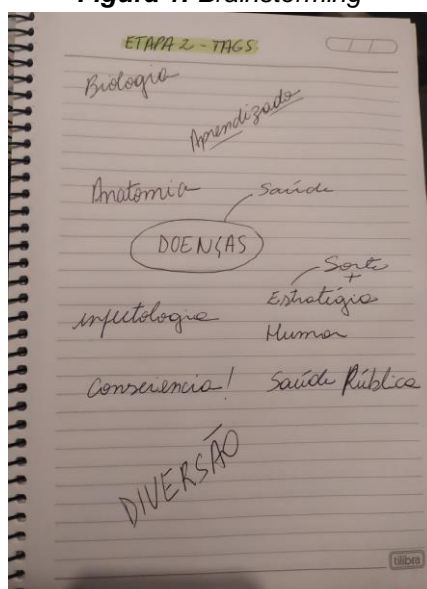 Figura 1. Brainstorming
ETAPA 2 - TAGS
Biologia
Aprendizado
Anatomia
Saúde
DOENÇAS
Sorte
+
Estratégia
infectologia
Humor
Consciencia!
Saúde Pública
DIVERSÃO
tilibra